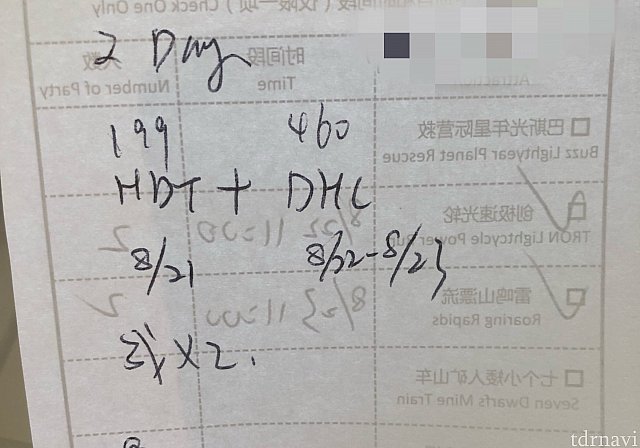 2 Day
199 460
HDT + DHC
8/21 8/22-8/23
X 2.
Check One Only
时间段 人数
Time Number of Party
巴斯光年星际营救
Buzz Lightyear Planet Rescue
创极速光轮 8/22 11:00 2
TRON Lightcycle Power Run
雷鸣山漂流 8/23 11:00 2
Roaring Rapids
七个小矮人矿山车
Seven Dwarfs Mine Train
tdrnavi